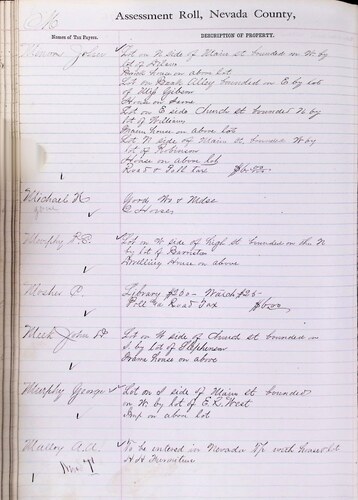 Assessment Roll, Nevada County,
Names of Tax Payers.
DESCRIPTION OF PROPERTY.
John
Lot on N side of Main st bounded on W by
lot of
Brick house on above lot
Lot on Back Alley bounded on E by lot
of Mrs Gibson
House on Same
Lot on E side Church st bounded N by
lot of William
Frame house on above lot
Lot N side of Main st bounded W by
lot of Robinson
House on above lot
Road & Poll tax $6.00
Michael N
Good Wo & Mdse
2 Horses
Murphy P.C.
Lot on W side of High st bounded on the N
by lot of
Dwelling House on above
Mosher C.
Library $200 - Watch $25
Poll & Road Tax $6.00
Meek John H
Lot on W side of Church st bounded on
S by lot of Stephenson
Frame house on above
Murphy George
Lot on S side of Main st bounded
on W by lot of E. R. West
Imp on above lot
Malloy A.A.
To be entered in Nevada Tp with
H H Furniture